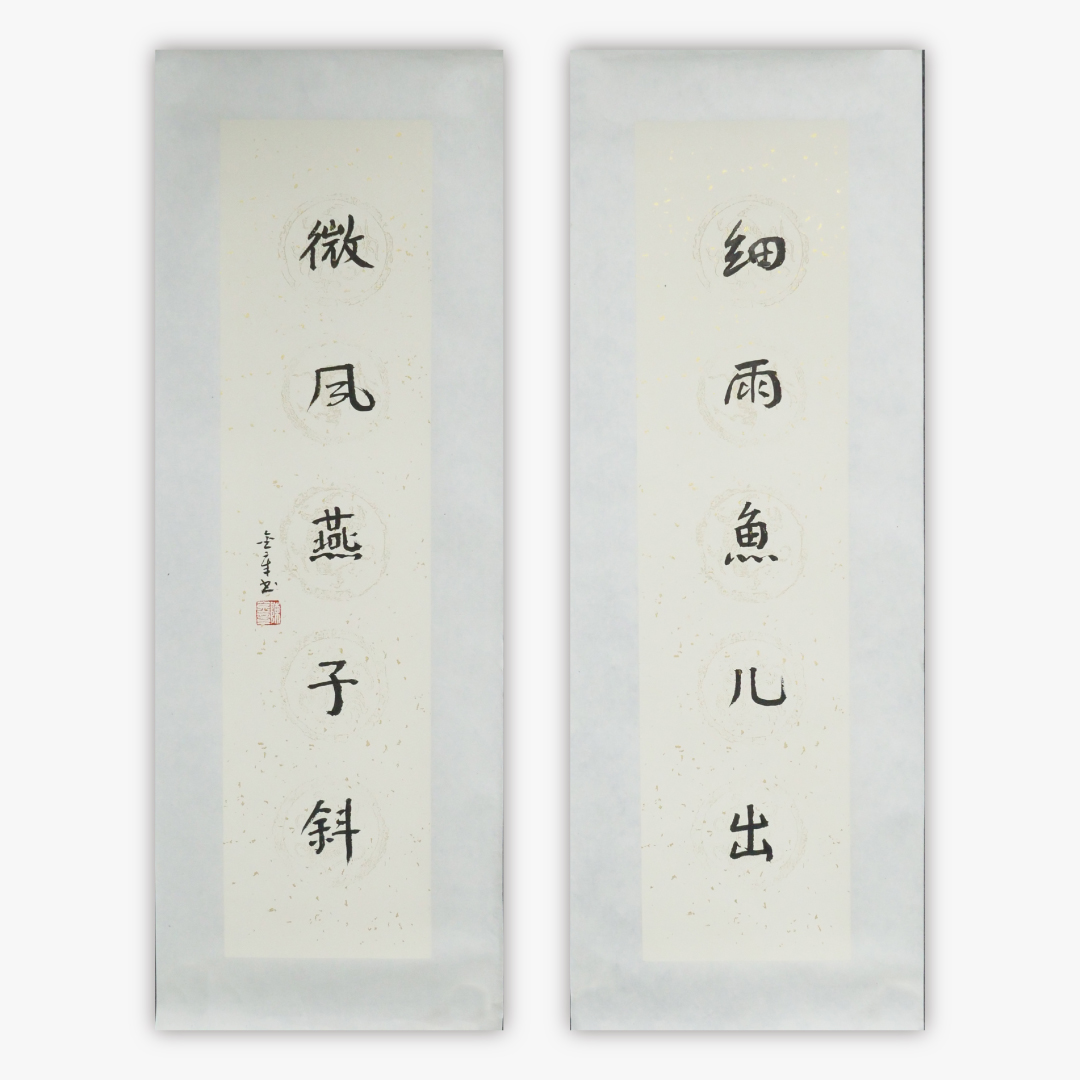 细雨魚儿出
微风燕子斜